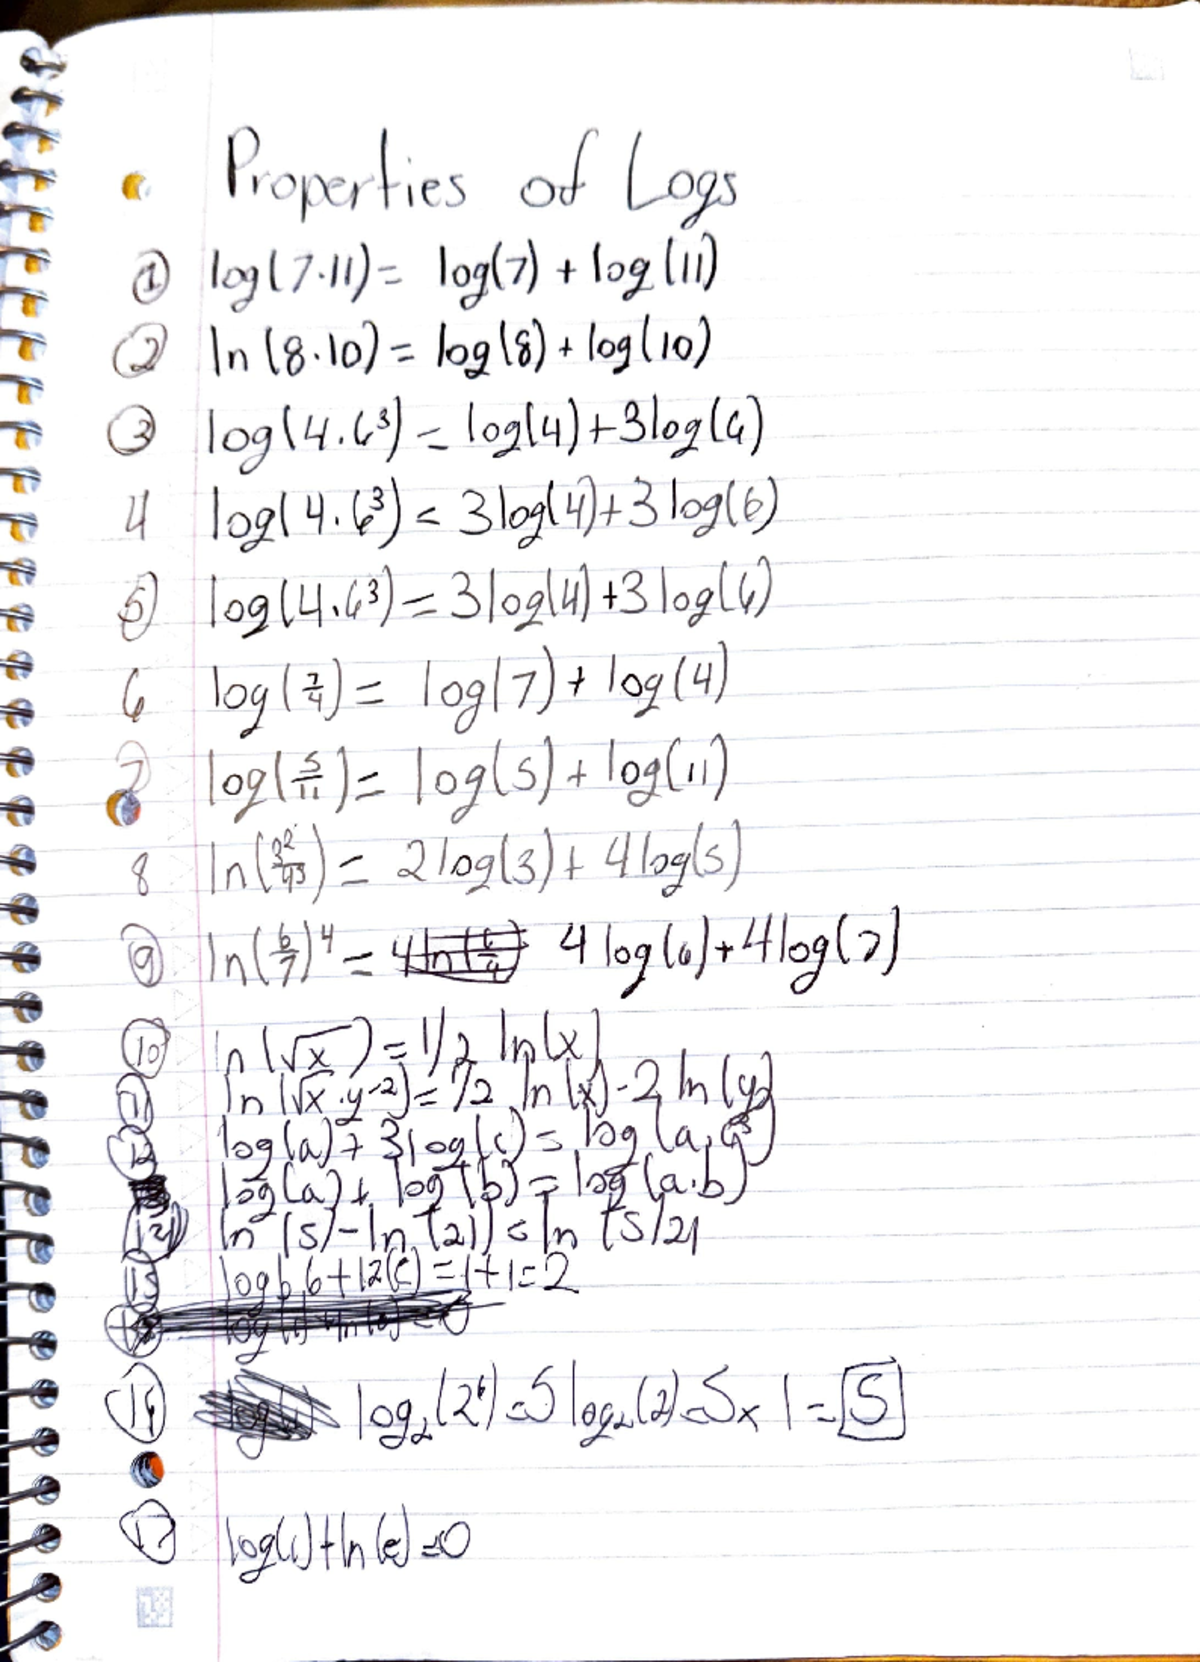 Properties of Logs
① log(7·11) = log(7) + log(11)
② ln(8·10) = log(8) + log(10)
③ log(4·6³) = log(4)+3log(6)
4 log(4·6³) = 3log(4)+3log(6)
⑤ log(4·6³) = 3log(4)+3log(6)
6 log(7/4) = log(7) + log(4)
7 log(5/11) = log(5) + log(11)
8 ln( ) = 2log(3) + 4log(5)
⑨ ln(6/7)⁴ = 4log(6)+4log(7)
⑩ ln(√x) = 1/2 ln(x)
⑪ ln(√x·y⁻²) = 1/2 ln(x)-2ln(y)
⑫ log(a) + 3log(c) = log(a·c³)
log(a) + log(b) = log(a·b)
⑭ ln(5)-ln(21) = ln(5/21
⑮ log6 6+12( ) = 1+1=2
log₂(2⁶)=5log₂(2)=5x1=5
⑰ log(1)+ln(e)=0